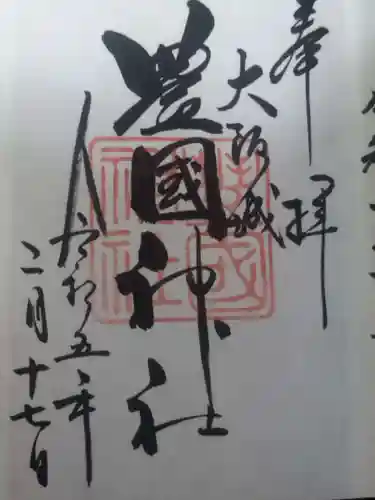 奉拝
大阪城
豊國神社
令和五年
二月十七日